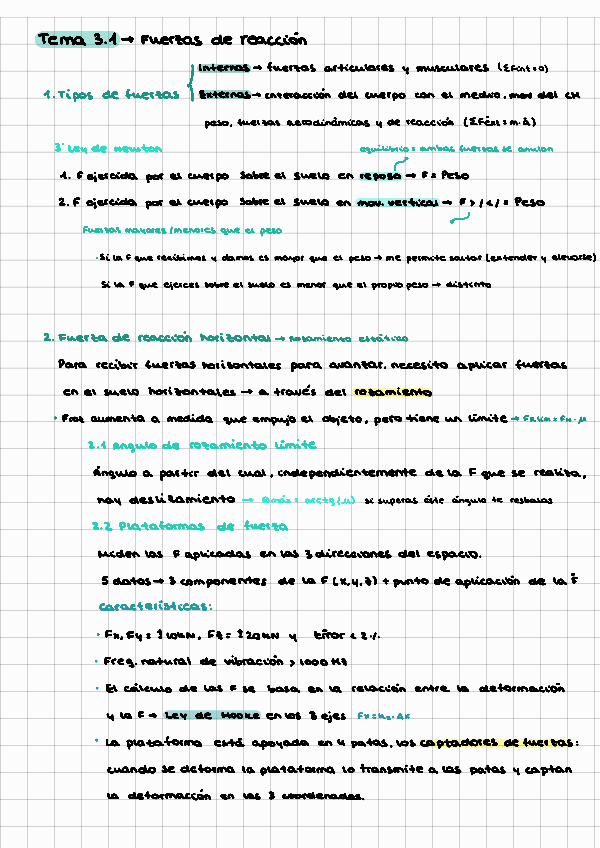 Tema 3.1 → Fuerzas de reacción
Internas → fuerzas articulares y musculares (ΣFint=0)
1. Tipos de fuerzas { Externas → interacción del cuerpo con el medio, mov del CM
peso, fuerzas aerodinámicas y de reacción (ΣFext = m·a)
3ª Ley de newton
equilibrio = ambas fuerzas se anulan
1. F ejercida por el cuerpo sobre el suelo en reposo → F = Peso
2. F ejercida por el cuerpo sobre el suelo en mov. vertical → F > / < / = Peso
Fuerzas mayores/menores que el peso
· Si la F que recibimos y damos es mayor que el peso → me permite saltar (extender y elevarse)
Si la F que ejerces sobre el suelo es menor que el propio peso → distinto
2. Fuerza de reacción horizontal → rozamiento estático
Para recibir fuerzas horizontales para avanzar, necesito aplicar fuerzas
en el suelo horizontales → a través del rozamiento
· Froz aumenta a medida que empujo el objeto, pero tiene un límite → = FN·μ
2.1 Ángulo de rozamiento límite
Ángulo a partir del cual, independientemente de la F que se realiza,
hay deslizamiento → θmáx = arctg(μ) si superas éste ángulo te resbalas
2.2 Plataformas de fuerza
Miden las F aplicadas en las 3 direcciones del espacio.
5 datos → 3 componentes de la F (x, y, z) + punto de aplicación de la F
Características:
· Fx, Fy = ±10kN, Fz = ±20kN y Error < 2%
· Freq. natural de vibración > 1000 Hz
· El cálculo de las F se basa en la relación entre la deformación
y la F → Ley de Hooke en los 3 ejes
· La plataforma está apoyada en 4 patas, los captadores de fuerzas:
cuando se deforma la plataforma lo transmite a las patas y captan
la deformación en las 3 coordenadas.